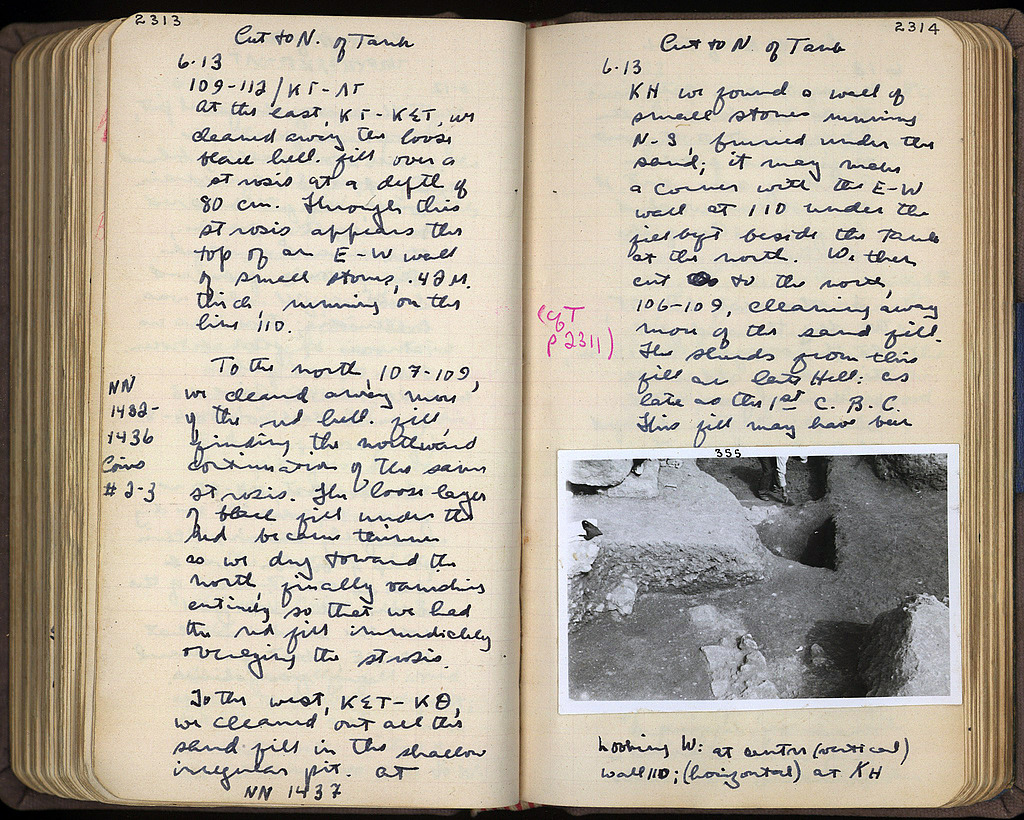 2313
Cut to N. of Tank
6.13
109-112/ΚΓ-ΛΓ
At the east, ΚΓ-ΚΣΤ, we
cleared away the loose
black hell. fill over a
strosis at a depth of
80 cm. Through this
strosis appears the
top of an E-W wall
of small stones, .42 M.
thick, running on the
line 110.
To the north, 107-109,
NN
1432-
1436
Coins
#2-3
we cleared away more
of the red hell. fill,
finding the northward
continuation of the same
strosis. The loose layer
of black fill under the
red became thinner
as we dug toward the
north, finally vanishing
entirely so that we had
the red fill immediately
overlying the strosis.
To the west, ΚΣΤ-ΚΘ,
we cleaned out all the
sand fill in the shallow
irregular pit. At
NN 1437
2314
Cut to N. of Tank
6.13
KH we found a wall of
small stones running
N-S, buried under the
sand; it may make
a corner with the E-W
wall at 110 under the
fill left beside the Tank
at the north. We then
cut to the north,
106-109, clearing away
(cf T
p 2311)
more of the sand fill.
The sherds from this
fill are late Hell: as
late as the 1st C. B.C.
This fill may have been
355
Looking W: at center (vertical)
wall 110; (horizontal) at KH